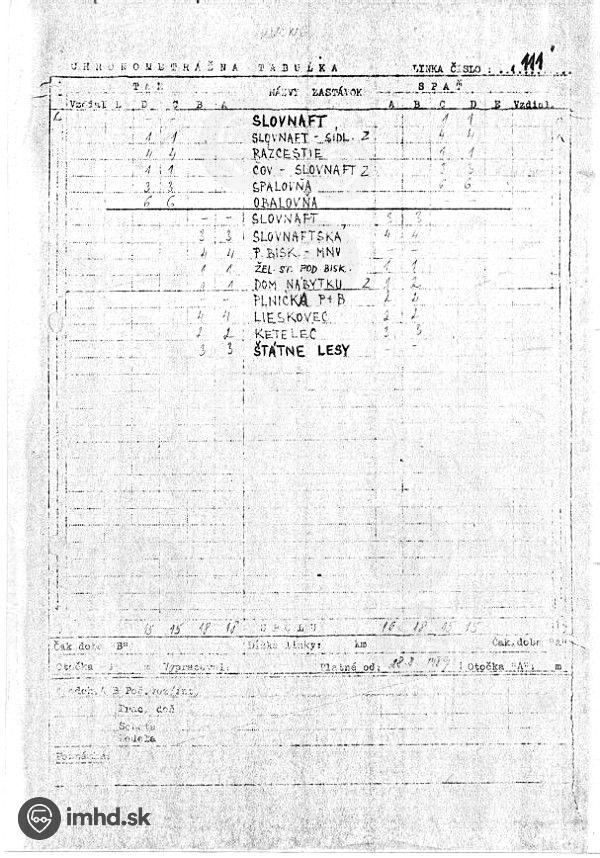 CHRONOMETRÁŽNA TABUĽKA LINKA ČÍSLO: 111
TAM NÁZVY ZASTÁVOK SPAŤ
Vzdial E D C B A A B C D E Vzdial.
SLOVNAFT 1 1
1 1 SLOVNAFT - SÍDL. 2 4 4
4 4 RÁZCESTIE 1 1
1 1 ČOV - SLOVNAFT 2 3 3
3 3 SPAĽOVŇA 6 6
6 6 OBAĽOVŇA
- - SLOVNAFT 3 3
3 3 SLOVNAFTSKÁ 4 4
4 4 P. BISK. - MNV
1 1 ŽEL. ST. POD. BISK. 1 1
1 1 DOM NÁBYTKU 2 1 2
- - PLNIČKA P+B 2 4
4 4 LIESKOVEC 2 2
2 2 KETELEC 3 3
3 3 ŠTÁTNE LESY
15 15 18 18 SPOLU 16 18 15 15
Čak.doba "B" Dĺžka linky: km Čak.doba "A"
Otočka m Vypracoval: Platné od: 1989 Otočka "A": m
Prac. dni
Sobota
Nedeľa
Poznámka:
imhd.sk